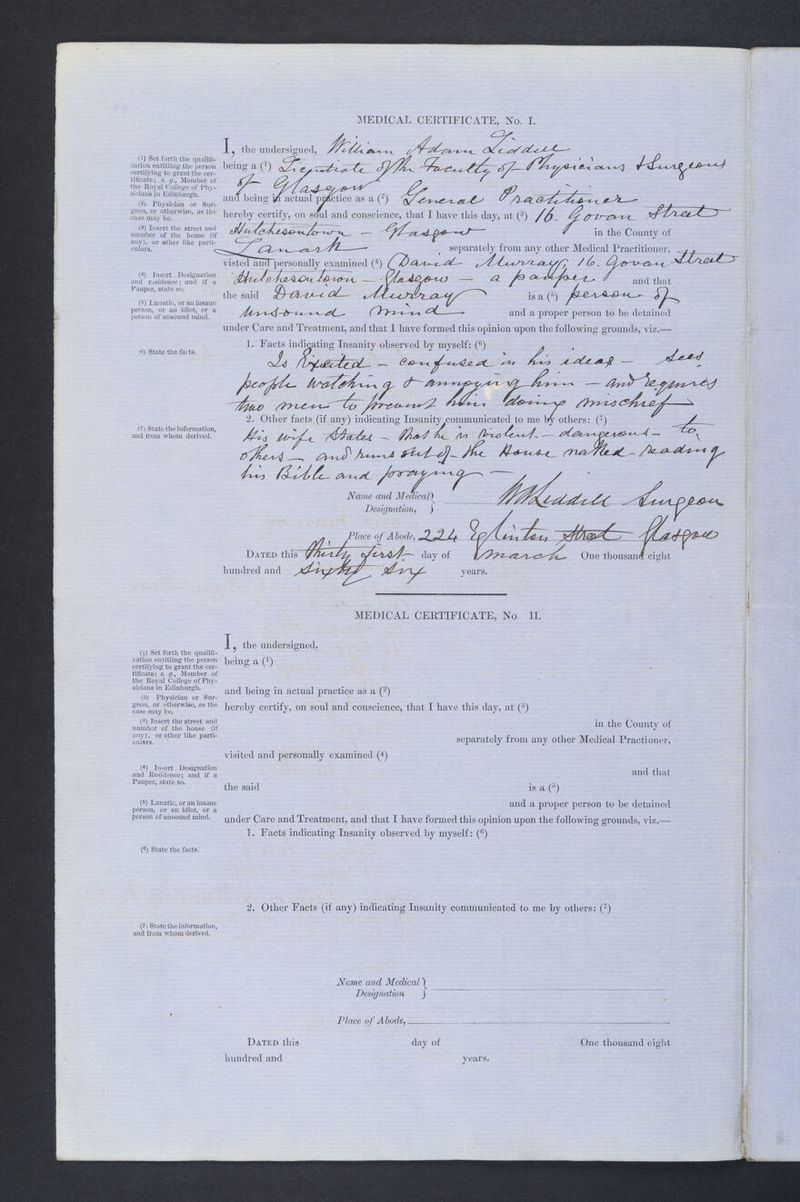 MEDICAL CERTIFICATE, No. I.
I, the undersigned, William Adam Liddell
(1) Set forth the qualifi-
cation entitling the person
certifying to grant the cer-
tificate; e. g., Member of
the Royal College of Phy-
sicians in Edinburgh.
being a (1) Licentiate of the Faculty of Physicians & Surgeons
of Glasgow
and being in actual practice as a (2) General Practitioner
(2) Physician or Sur-
geon, or otherwise, as the
case may be.
hereby certify, on soul and conscience, that I have this day, at (3) 16. Govan Street
(3) Insert the street and
number of the house (if
any), or other like parti-
culars.
Hutchesontown — Glasgow in the County of
Lanark separately from any other Medical Practitioner,
visted and personally examined (4) David Murray, 16. Govan Street
(4) Insert Designation
and residence; and if a
Pauper, state so.
Hutchesontown — Glasgow — a pauper and that
the said David Murray is a (5) person of
(5) Lunatic, or an insane
person, or an idiot, or a
person of unsound mind.
unsound mind and a proper person to be detained
under Care and Treatment, and that I have formed this opinion upon the following grounds, viz.—
1. Facts indicating Insanity observed by myself: (6)
(6) State the facts.
Is Excited — confused in his ideas — sees
people watching & annoying him — and requires
two men to prevent him doing mischief
2. Other facts (if any) indicating Insanity communicated to me by others: (7)
(7) State the information,
and from whom derived.
His wife States — that he is violent — dangerous — to
others — and runs out of the House naked — reading
his Bible and praying —
Name and Medical
Designation, } WALiddell Surgeon
Place of Abode, 224 Eglinton Street Glasgow
DATED this Thirty first day of March One thousand eight
hundred and Sixty Six years.
MEDICAL CERTIFICATE, No II.
I, the undersigned,
(1) Set forth the qualifi-
cation entitling the person
certifying to grant the cer-
tificate; e. g., Member of
the Royal College of Phy-
sicians in Edinburgh.
being a (1)
and being in actual practice as a (2)
(2) Physician or Sur-
geon, or otherwise, as the
case may be.
hereby certify, on soul and conscience, that I have this day, at (3)
(3) Insert the street and
number of the house (if
any), or other like parti-
culars.
in the County of
separately from any other Medical Practioner,
visited and personally examined (4)
(4) Insert Designation
and Residence; and if a
Pauper, state so.
and that
the said is a (5)
(5) Lunatic, or an insane
person, or an idiot, or a
person of unsound mind.
and a proper person to be detained
under Care and Treatment, and that I have formed this opinion upon the following grounds, viz.—
1. Facts indicating Insanity observed by myself: (6)
(6) State the facts.
2. Other Facts (if any) indicating Insanity communicated to me by others: (7)
(7) State the information,
and from whom derived.
Name and Medical
Designation }
Place of Abode,
DATED this day of One thousand eight
hundred and years.